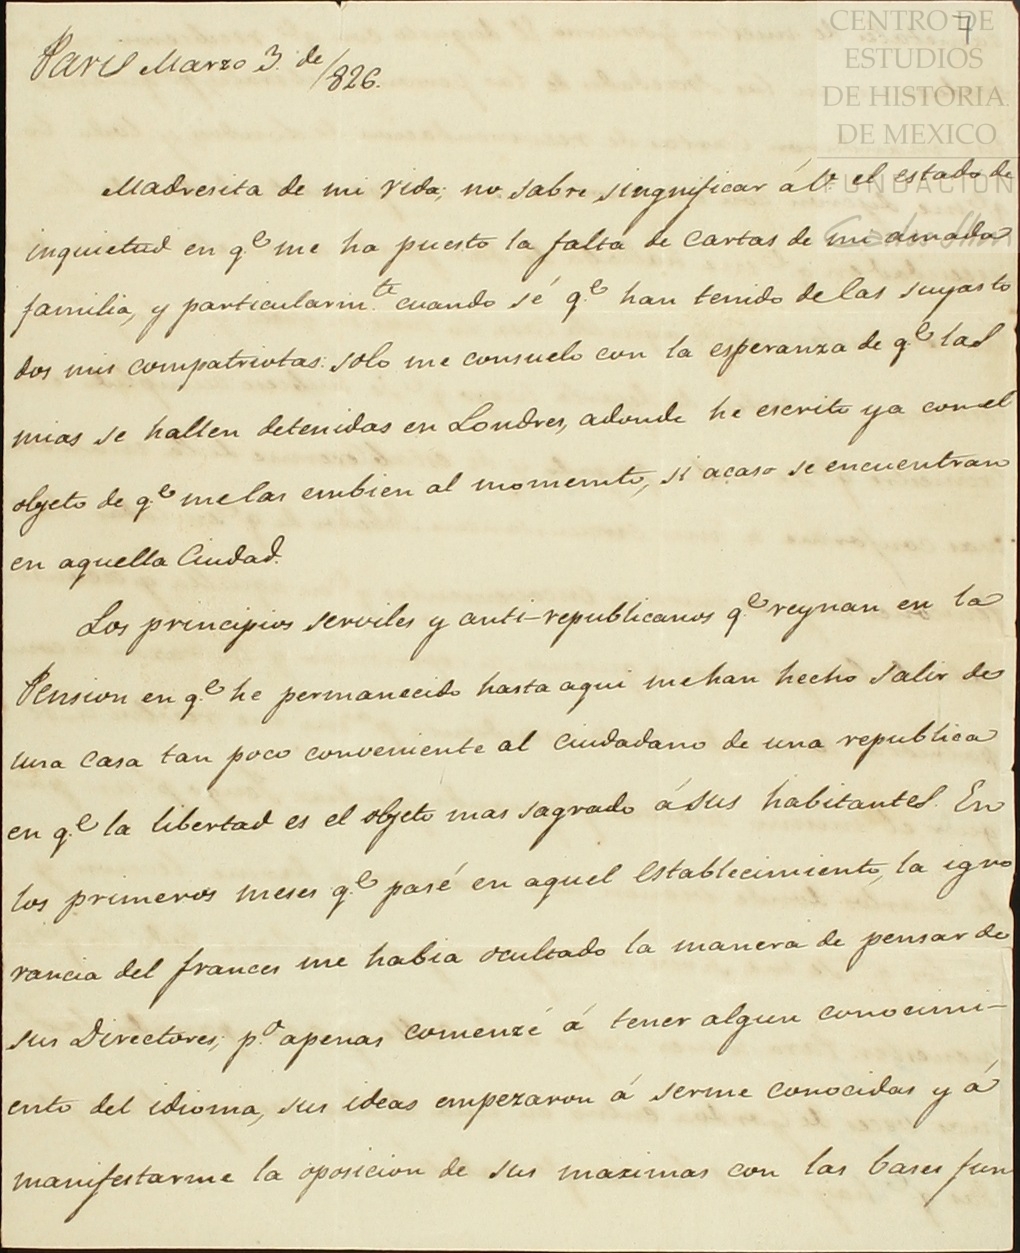 7
CENTRO DE
ESTUDIOS
DE HISTORIA
DE MEXICO
FUNDACION
Paris Marzo 3. de/826.
Madresita de mi vida; no sabre singnificar á V. el estado de
inquietud en q.e me ha puesto la falta de cartas de mi amada
familia, y particularm.te cuando sé q.e han tenido de las suyas to
dos mis compatriotas: solo me consuelo con la esperanza de q.e las
mias se hallen detenidas en Londres, adonde he escrito ya con el
objeto de q.e me las embien al momemto, si acaso se encuentran
en aquella Ciudad.
Los principios serviles y anti-republicanos q.e reynan en la
Pension en q.e he permanecido hasta aqui me han hecho salir de
una casa tan poco conveniente al ciudadano de una republica
en q.e la libertad es el objeto mas sagrado á sus habitantes. En
los primeros meses q.e pasé en aquel establecimiento, la igno
rancia del frances me habia ocultado la manera de pensar de
sus Directores; p.o apenas comenzé á tener algun conocimi-
ento del idioma, sus ideas empezaron á serme conocidas y á
manifestarme la oposicion de sus maximas con las bases fun